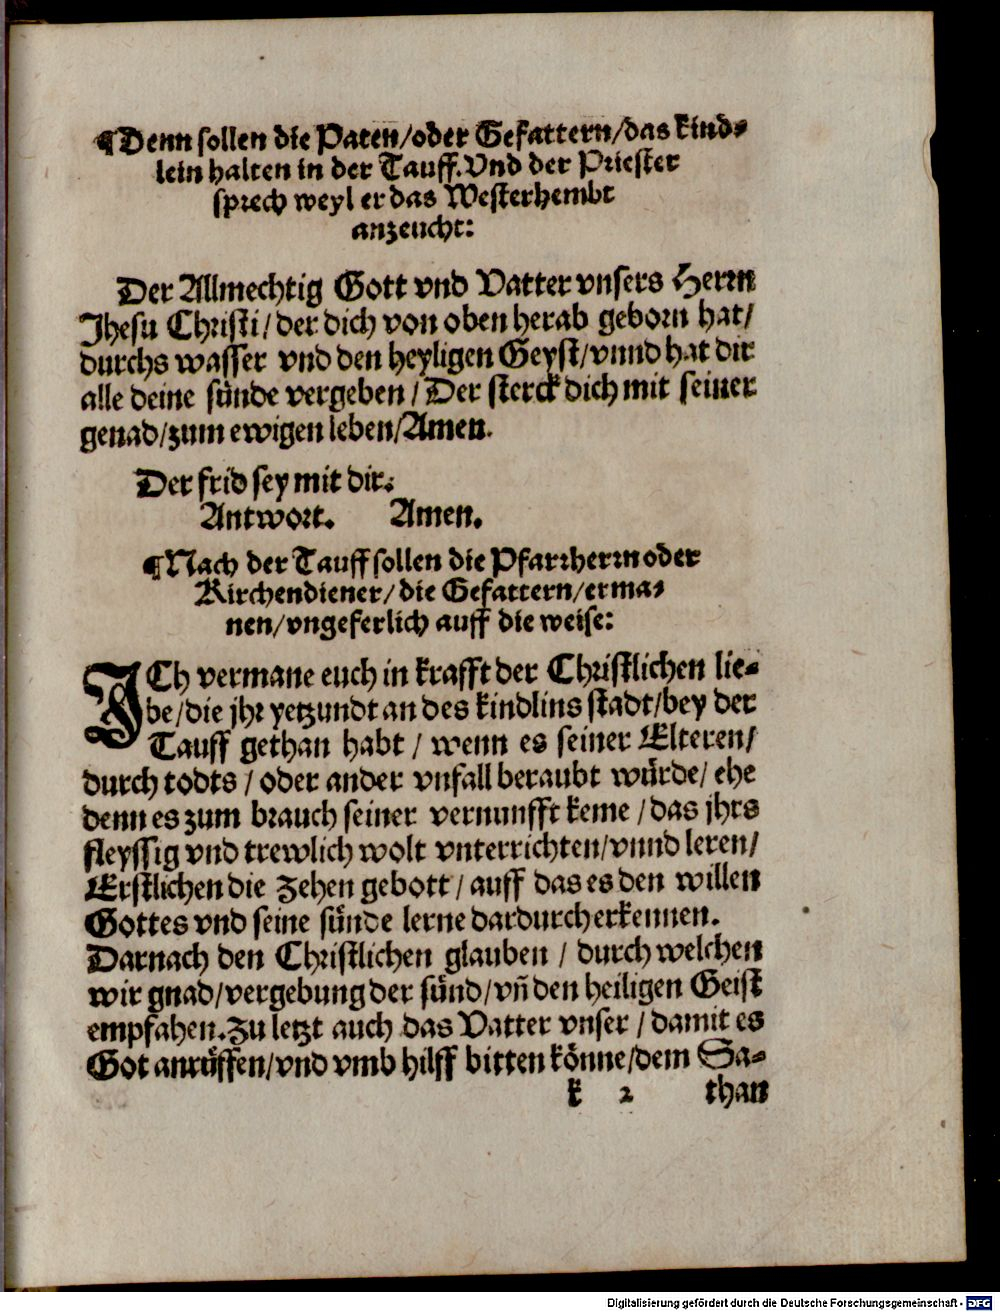 ¶Denn sollen die Paten/oder Gefattern/das kind⸗
lein halten in der Tauff.Vnd der Priester
sprech weyl er das Westerhembt
anzeucht:
Der Allmechtig Gott vnd Vatter vnsers Herrn
Jhesu Christi/der dich von oben herab geborn hat/
durchs wasser vnd den heyligen Geyst/vnnd hat dir
alle deine sünde vergeben/Der sterck dich mit seiner
genad/zum ewigen leben/Amen.
Der frid sey mit dir.
Antwort. Amen.
¶Nach der Tauff sollen die Pfarrherrn oder
Kirchendiener/die Gefattern/erma⸗
nen/vngeferlich auff die weise:
ICh vermane euch in krafft der Christlichen lie⸗
be/die jhr yetzundt an des kindlins stadt/bey der
Tauff gethan habt/wenn es seiner Elteren/
durch todts/oder ander vnfall beraubt würde/ehe
denn es zum brauch seiner vernunfft keme/das jhrs
fleyssig vnd trewlich wolt vnterrichten/vnnd leren/
Erstlichen die Zehen gebott/auff das es den willen
Gottes vnd seine sünde lerne dardurch erkennen.
Darnach den Christlichen glauben/durch welchen
wir gnad/vergebung der sünd/vñ den heiligen Geist
empfahen.Zu letzt auch das Vatter vnser/damit es
Got anrüffen/vnd vmb hilff bitten könne/dem Sa⸗
k 2 than
Digitalisierung gefördert durch die Deutsche Forschungsgemeinschaft - DFG